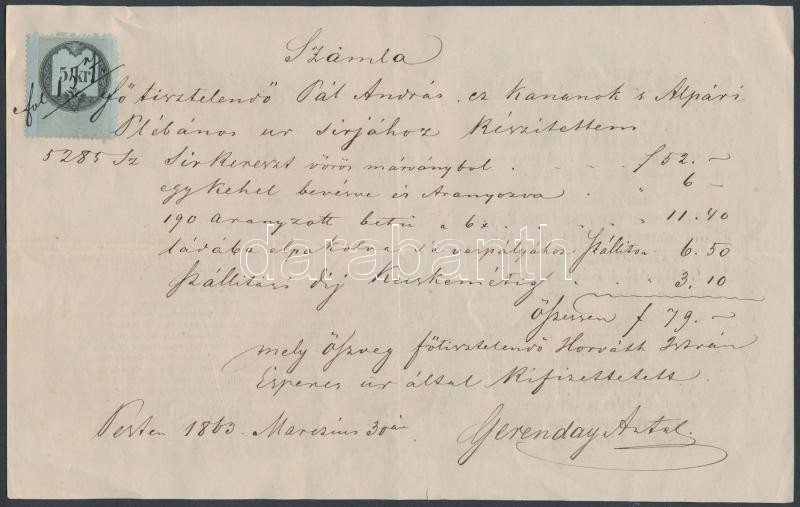 Számla
5 kr
fő tisztelendő Pál András. cz. Kananok s Alpári
Plébános ur sirjához Készitettem
5285 Sz Sirkereszt vörös márványbol . - - . f 52. –
egy Kehel bevésve és Aranyozva . . " 6 –
190 aranyzott betü a 6 x . . . " 11.40
ládába elpakolva s a vaspályához Szállitva . 6.50
Szállitási dij Kecskemétig . . " 3.10
Öszessen f 79. –
mely Öszveg főtisztelendő Horváth Istrán
Esperes ur által Kifizettetett.
Pesten 1863. Marczius 30án
Gerenday Antal.
darabanth